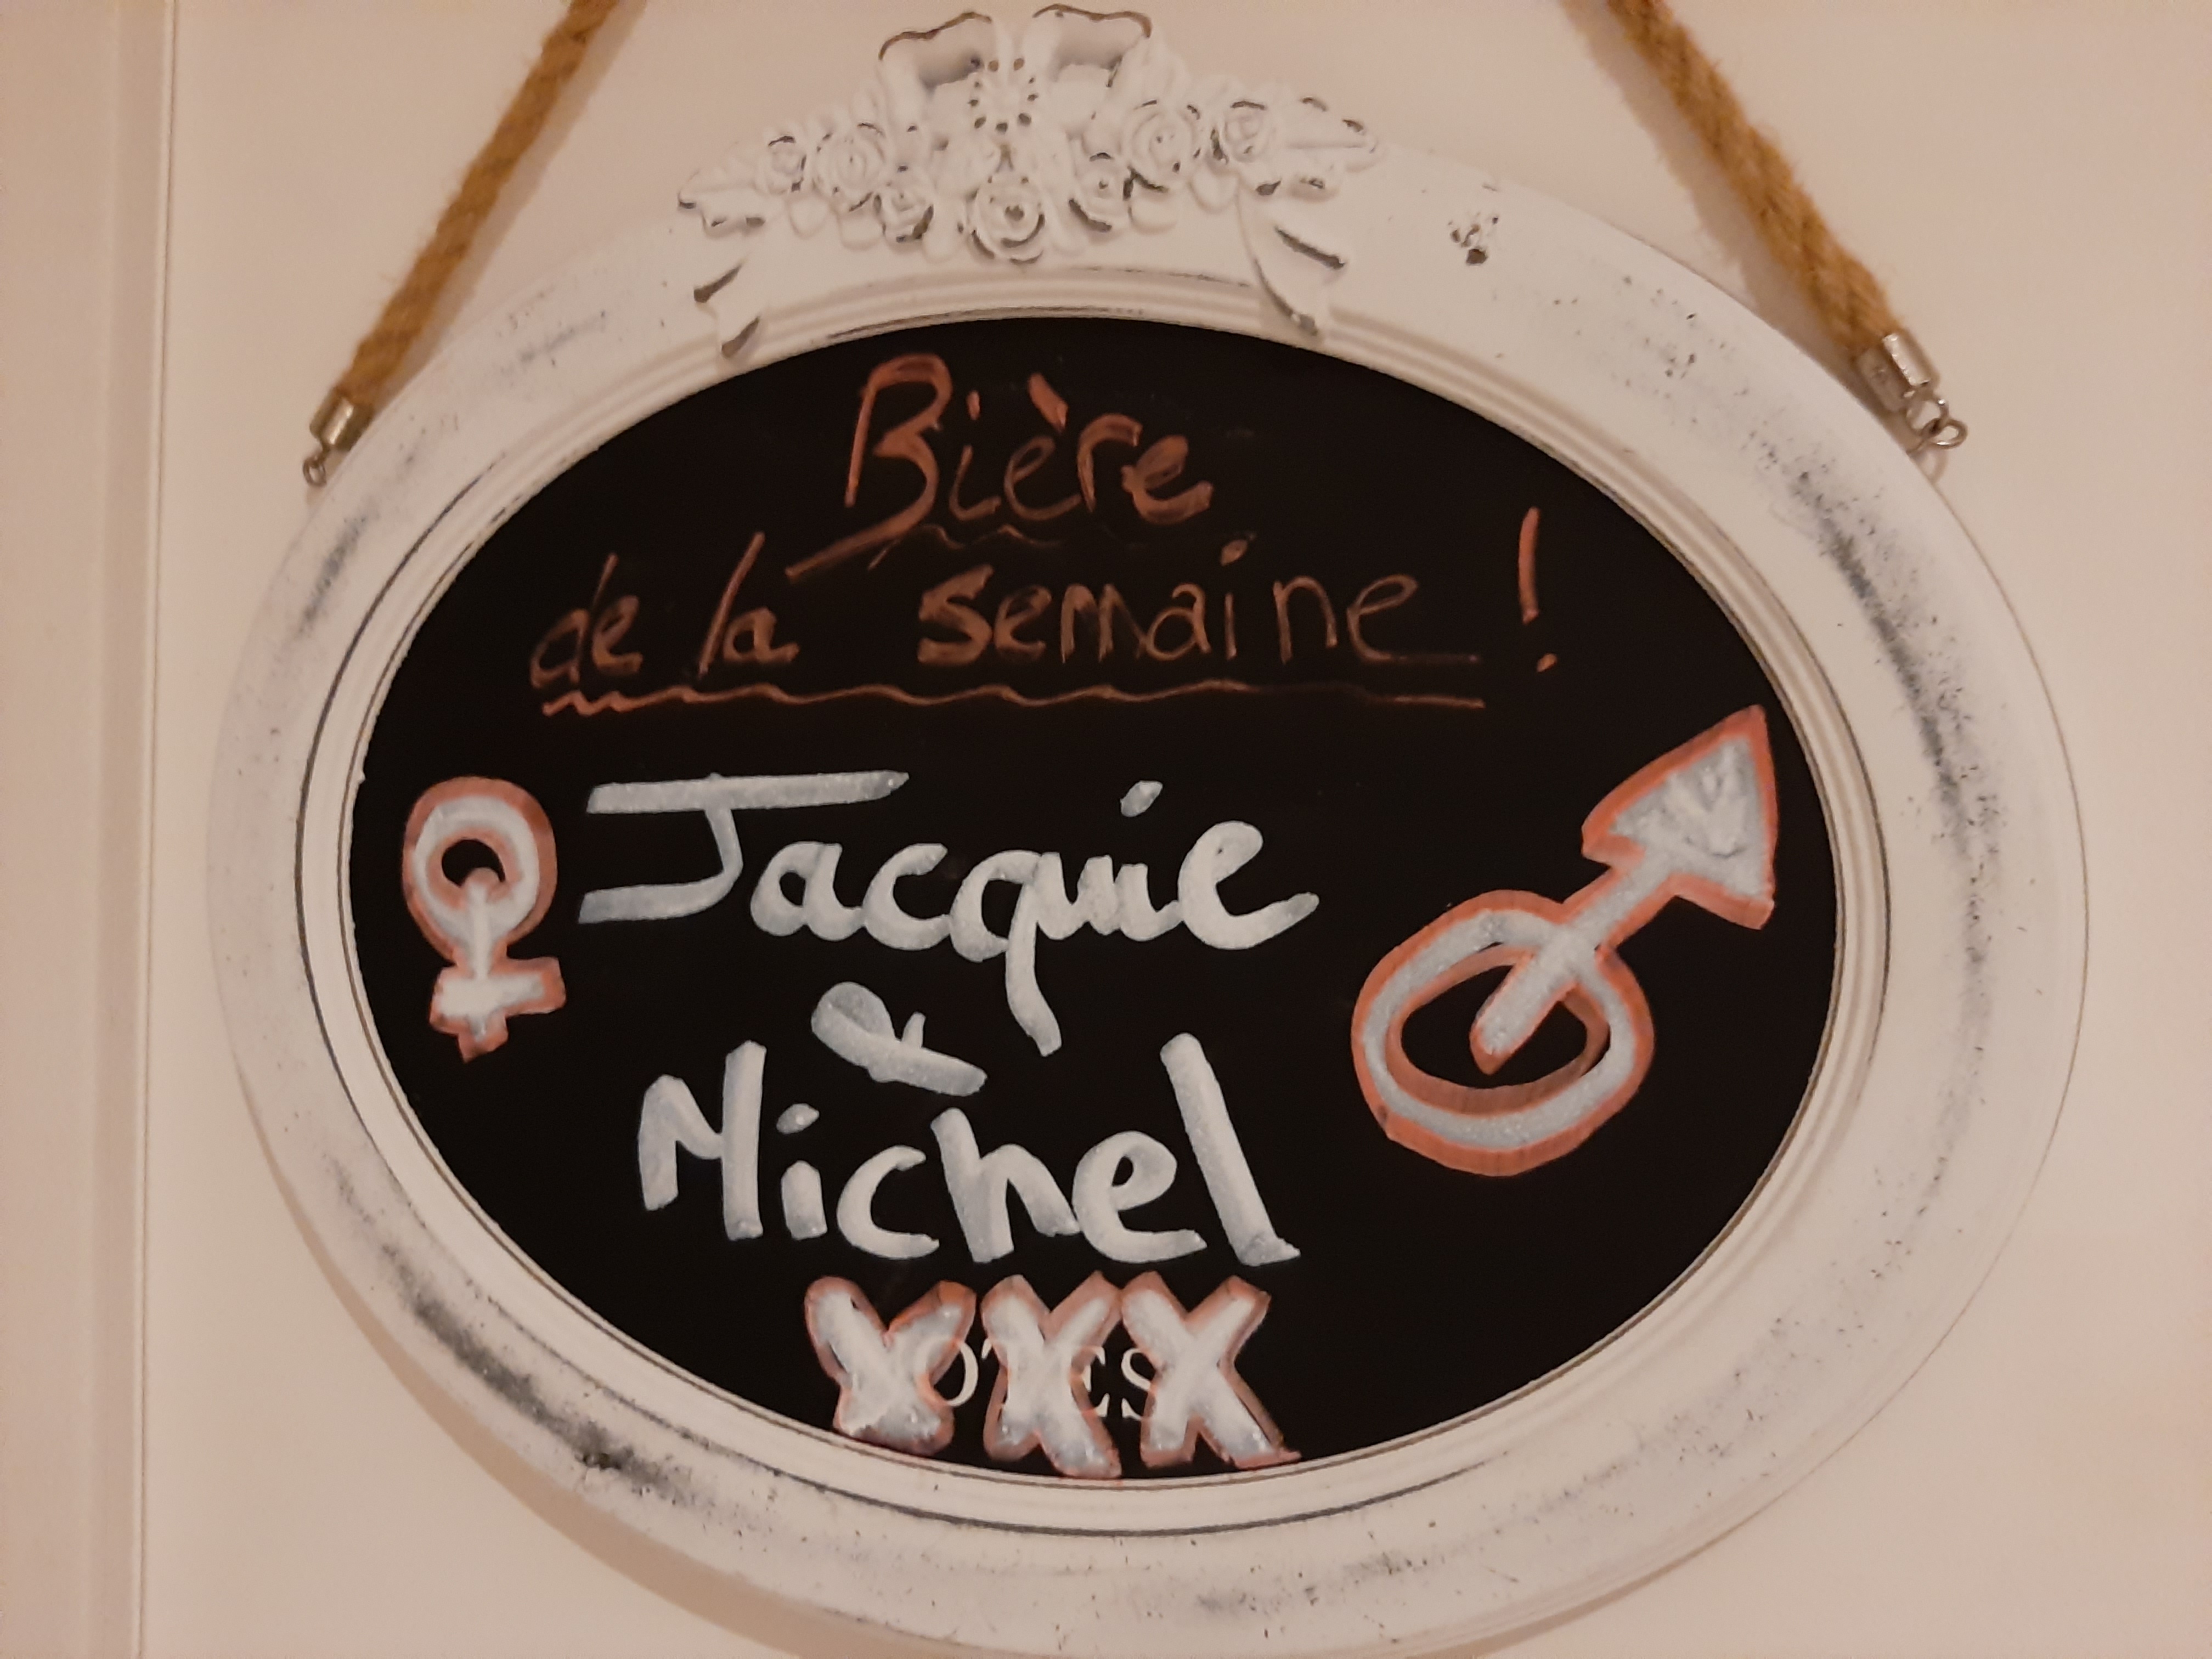 Bière
de la semaine !
Jacquie
&
Michel
XXX